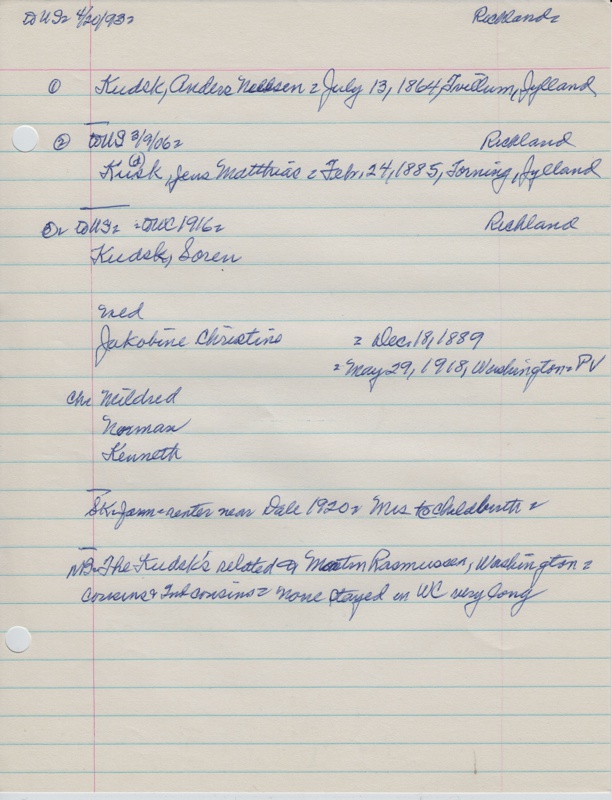 to US= 4/20/93= Richland=
① Kudsk, Anders Nielsen = July 13, 1864, Tvillum, Jylland
② to US 3/9/06= Richland
Kusk (d), Jens Matthias = Feb. 24, 1885, Torning, Jylland
to US= =to WC 1916= Richland
Kudsk, Soren
med
Jakobine Christine = Dec. 18, 1889
= May 29, 1918, Washington = PV
Ch= Mildred
Norman
Kenneth
SK=farm=renter near Dale 1920= Mrs to childbirth =
NB=The Kudsk's related to Martin Rasmussen, Washington =
cousins & 2nd cousins = None stayed in WC very long